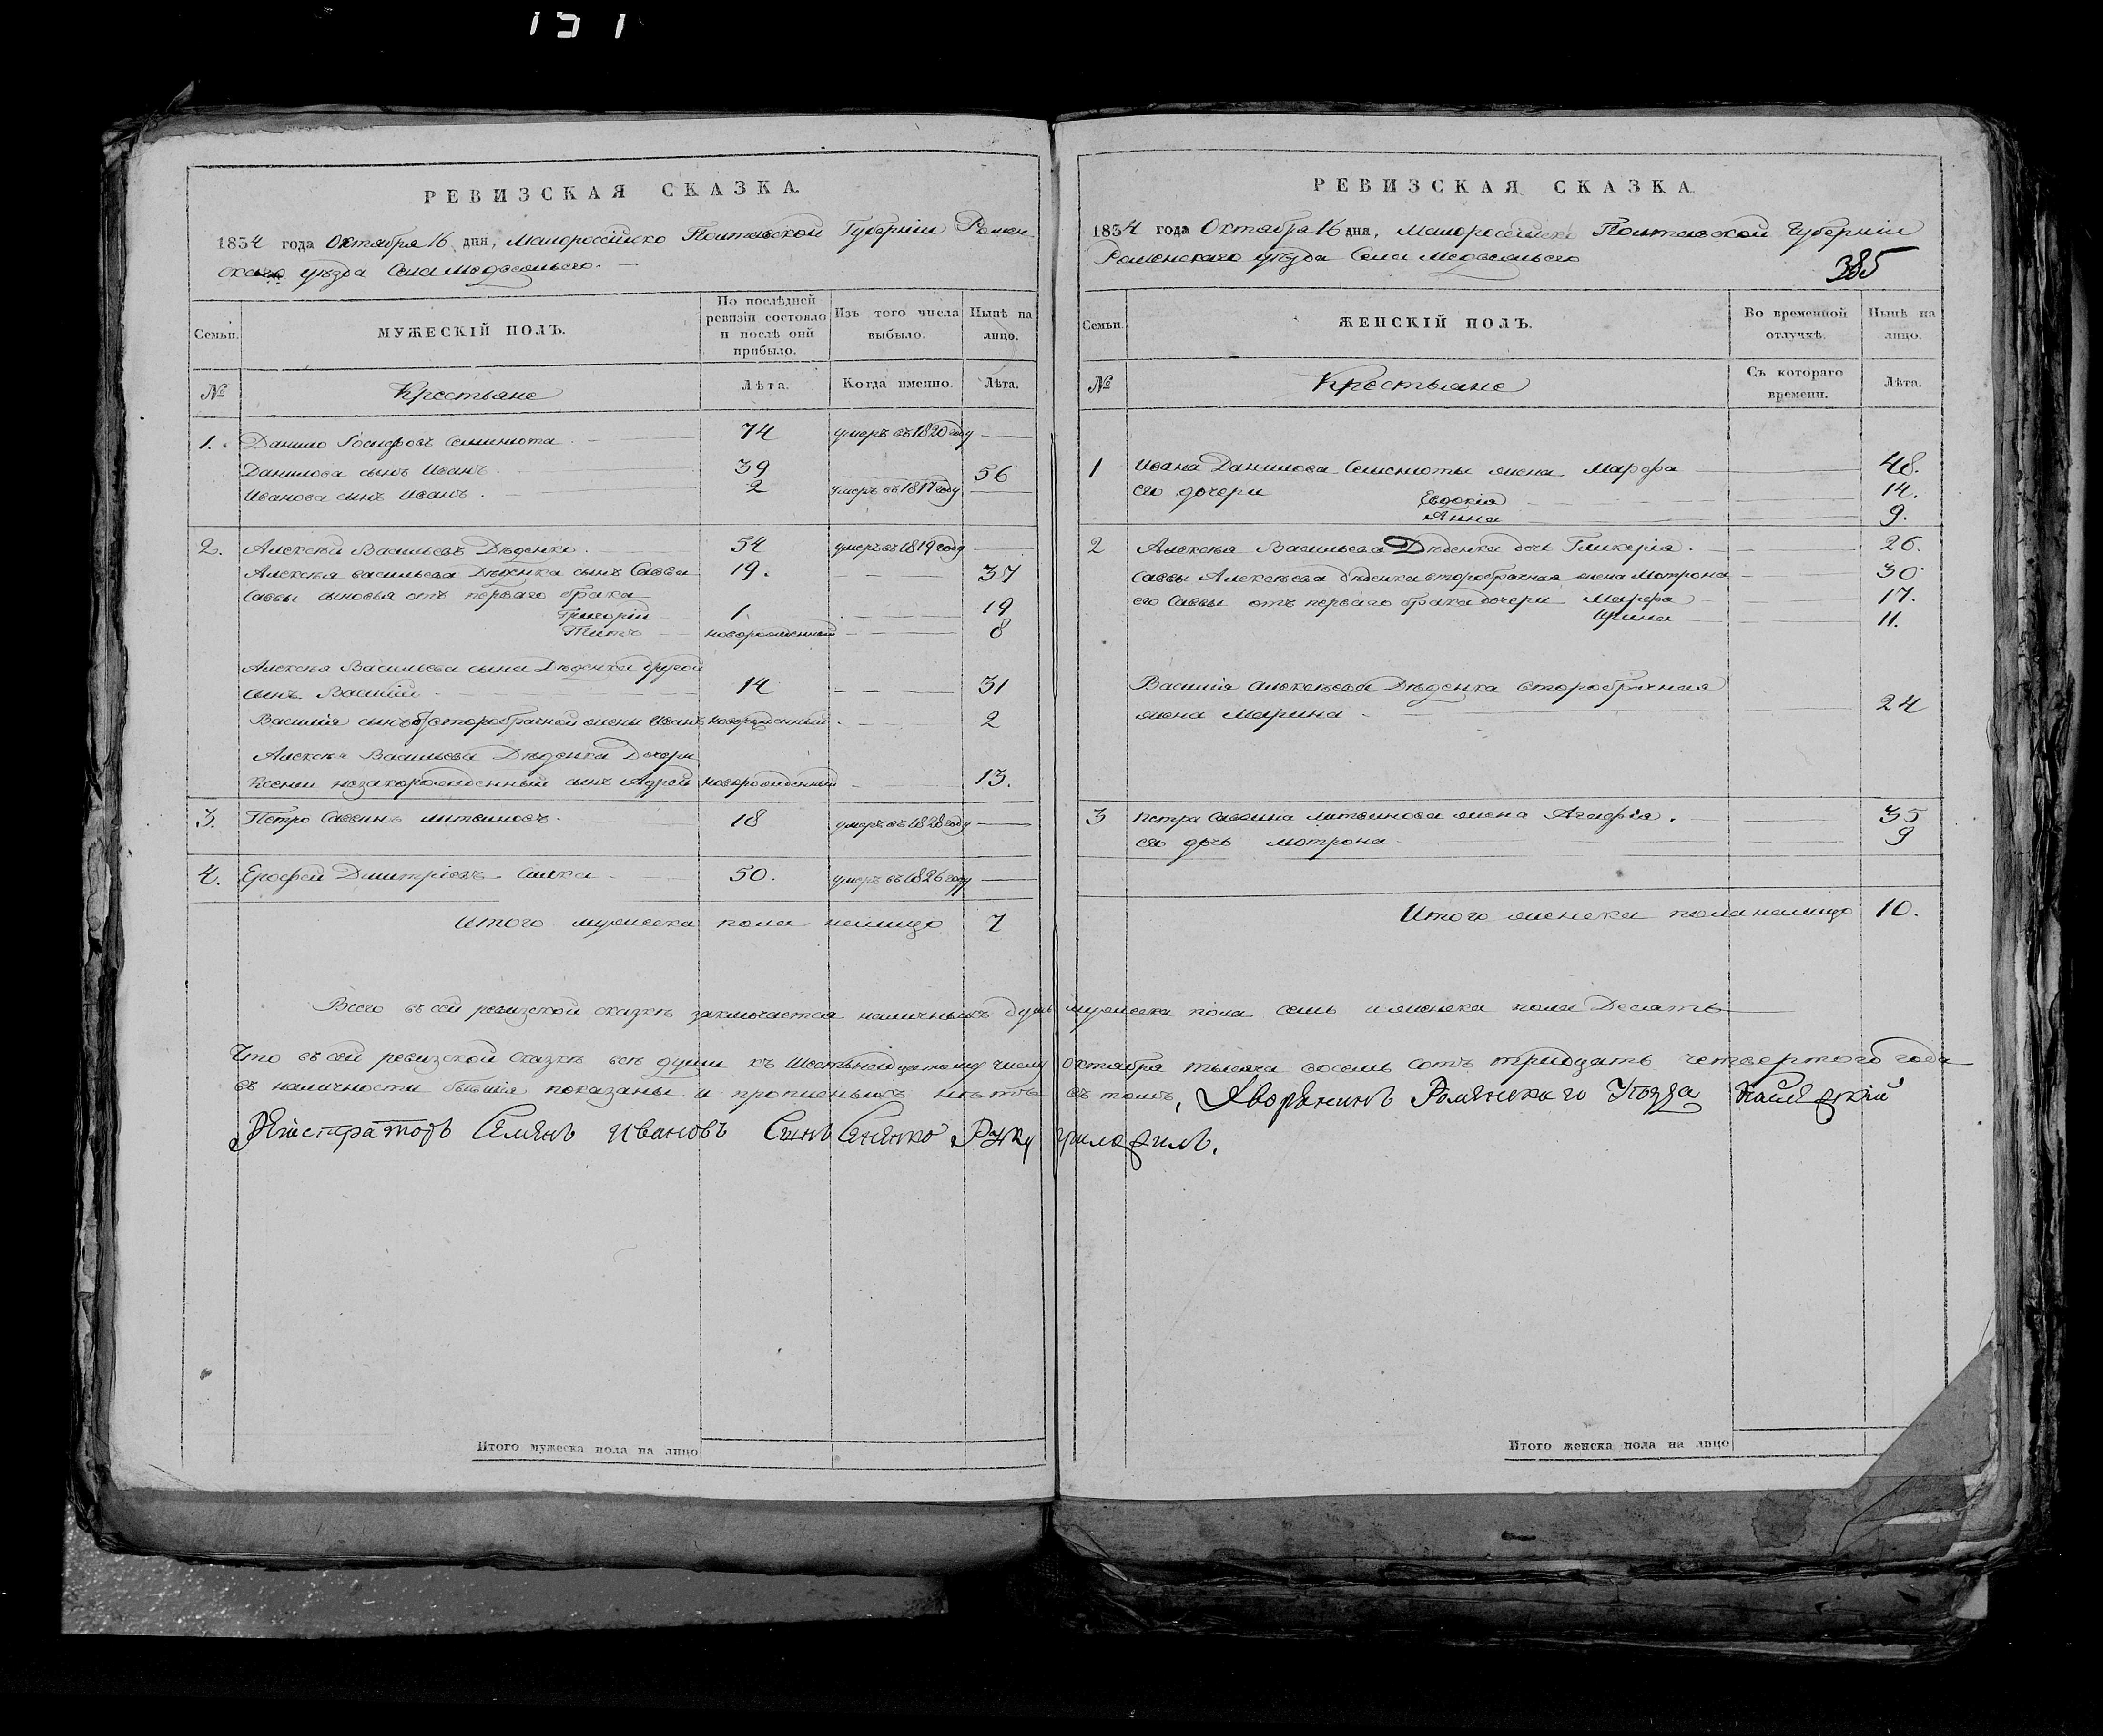 РЕВИЗСКАЯ СКАЗКА.
1834 года Октября 16 дня, Малороссійско Полтавской Губерніи Ромен-
скаго уѣзда Села Медвежьего.
Семьи.
МУЖЕСКІЙ ПОЛЪ.
По послѣдней ревизіи состояло и послѣ оній прибыло.
Изъ того числа выбыло.
Нынѣ на лицо.
№
Крестьяне
Лѣта.
Когда именно.
Лѣта.
1. Данило Іосифовъ 74 умеръ въ 1820 году
Данилова сынъ Иванъ 39 56
Иванова сынъ Иванъ 2 умеръ въ 1817 году
2. Алексѣй Васильевъ Дѣденко 54 умеръ въ 1819 году
Алексѣя Васильева Дѣденка сынъ Савва 19. 37
Саввы сыновья отъ перваго брака
Григорій 1. 19
Титъ новорожденный 8
Алексѣя Васильева сына Дѣденка другой
сынъ Василій 14 31
Василія сынъ отъ второбрачной жены Иванъ новорожденный 2
Алексѣя Васильева Дѣденка Дочери
Ксеніи незаконорожденный сынъ Андрей новорожденный 13.
3. Петро Саввинъ Литвиновъ 18 умеръ въ 1828 году
4. Ерофей Дмитріевъ 50. умеръ въ 1826 году
Итого мужеска пола налицо 7
РЕВИЗСКАЯ СКАЗКА.
1834 года Октября 16 дня, Малороссійско Полтавской Губерніи
Роменскаго уѣзда Села Медвежьего
385
Семьи.
ЖЕНСКІЙ ПОЛЪ.
Во временной отлучкѣ.
Нынѣ на лицо.
№
Крестьяне
Съ котораго времени.
Лѣта.
1 Ивана Данилова жена Марфа 48.
его дочери Евдокія 14.
Анна 9.
2 Алексѣя Васильева Дѣденка дочь Гликерія. 26.
Саввы Алексѣева Дѣденка второбрачная жена Мотрона 30.
его Саввы отъ перваго брака дочери Марфа 17.
Ирина 11.
Василія Алексѣева Дѣденка второбрачная
жена Марина 24
3 Петра Саввина Литвинова жена Агафія. 35
его дочь Мотрона 9
Итого женска пола налицо 10.
Всего въ сей ревизской сказкѣ заключается наличныхъ душъ мужеска пола семь и женска пола Десять
Что въ сей ревизской сказкѣ всѣ души къ Шестьнадцатому числу октября тысяча восемь сотъ тридцать четвертого года
въ наличности бывшія показаны и прописныхъ нѣтъ въ томъ, Дворянинъ Роменскаго Уѣзда
Семенъ Ивановъ Сынъ Руку приложилъ.
Итого мужеска пола на лицо
Итого женска пола на лицо